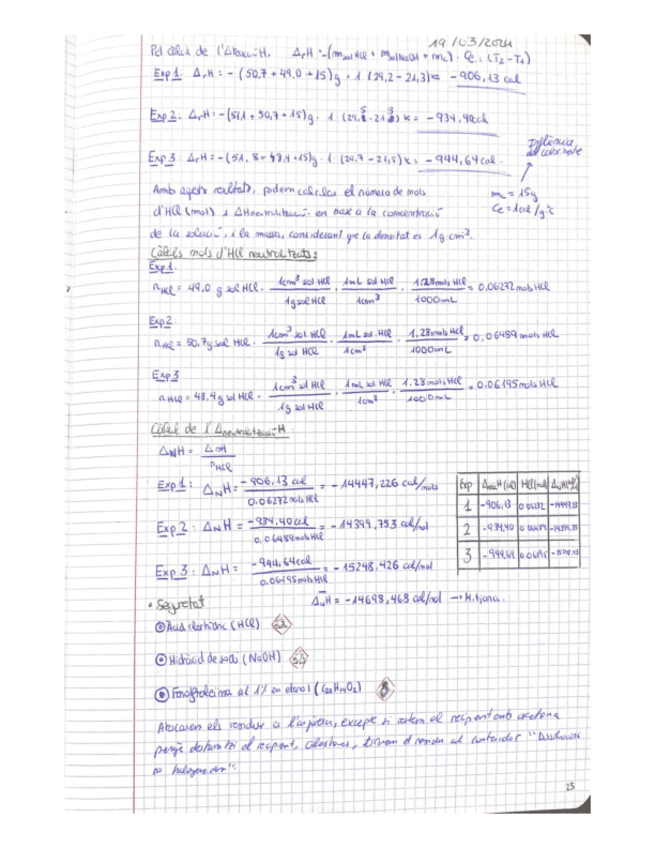 19/03/2024
Pel càlcul de l'ΔReacció H. ΔrH = -(m sol HCl + m sol NaOH + mc) · Ce · (T2 - T1)
Exp 1. ΔrH = - (50,7 + 49,0 + 15)g · 1 (29,2 - 21,3) = - 906,13 cal
Exp 2. ΔrH = - (51,1 + 50,7 + 15)g · 1 K = - 934,40 cal
Influència del calorímetre
Exp 3 : ΔrH = - (51,8 + 48,4 + 15)g · 1 (29,7 - 21,5) K = - 944,64 cal.
Amb aquests resultats, podem calcular el número de mols
mc = 15g
d'HCl (mol) i ΔHneutralització en base a la concentració
Ce = 1 cal/g°C
de la solució i la massa, considerant que la densitat és 1 g cm³.
Càlculs mols d'HCl neutralitzats:
Exp 1.
nHCl = 49,0 g sol HCl · 1cm³ sol HCl / 1g sol HCl · 1mL sol HCl / 1cm³ · 1.28 mols HCl / 1000 mL = 0,06272 mols HCl
Exp 2
nHCl = 50,7g sol HCl · 1cm³ sol HCl / 1g sol HCl · 1mL sol HCl / 1cm³ · 1.28 mols HCl / 1000 mL = 0,06489 mols HCl
Exp 3
nHCl = 48.4 g sol HCl · 1cm³ sol HCl / 1g sol HCl · 1mL sol HCl / 1cm³ · 1.28 mols HCl / 1000 mL = 0.06195 mols HCl
Càlcul de l'Δneutralització H
ΔNH = ΔrH / nHCl
Exp 1: ΔNH = - 906,13 cal / 0.06272 mols HCl = - 14447,226 cal/mols
Exp 2 : ΔNH = - 934,40 cal / 0,06489 mols HCl = - 14399,753 cal/mol
Exp 3 : ΔNH = - 944,64 cal / 0.06195 mols HCl = - 15248.426 cal/mol
Exp HCl (mol)
1 -906,13
2 -934,40
3 -944,64
ΔNH = - 14698,468 cal/mol → Mitjana.
• Seguretat
Àcid clorhídric (HCl)
Hidròxid de sodi (NaOH)
Fenolftaleïna al 1% en etanol (C20H14O2)
Abocarem els residus a l'aigüera, excepte si netem el recipient amb acetona
el recipient, el residu al contenidor "Dissolvent
no halogenats".
25